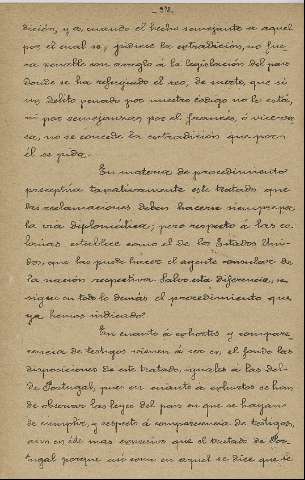 - 272 -
dición, y a cuando el hecho semejante a aquel
por el cual se pidiere la extradición, no fue-
ra punible con arreglo á la legislación del pais
donde se ha refugiado el reo, de suerte, que si
un delito penado por nuestro código no lo está,
ni por semejanza por el frances, ó vice-ver-
sa, no se concede la extradición que por
él se pida.
En materia de procedimiento
preceptúa taxativamente este tratado que
las reclamaciones deben hacerse siempre por
la via diplomática; pero respecto á las co-
lonias establece como el de los Estados Uni-
dos, que las puede hacer el agente consular de
la nación respectiva. Salvo esta diferencia, se
sigue en todo lo demás el procedimiento que
ya hemos indicado.
En cuanto á exhortos y compare-
cencia de testigos vienen á ser en el fondo las
disposiciones de este tratado, iguales á las del
de Portugal, pues en cuanto á exhortos se han
de observar las leyes del pais en que se hayan
de cumplir, y respecto á comparecencia de testigos,
aun es mas expresivo que el tratado de Por-
tugal porque así como en aquel se dice que se